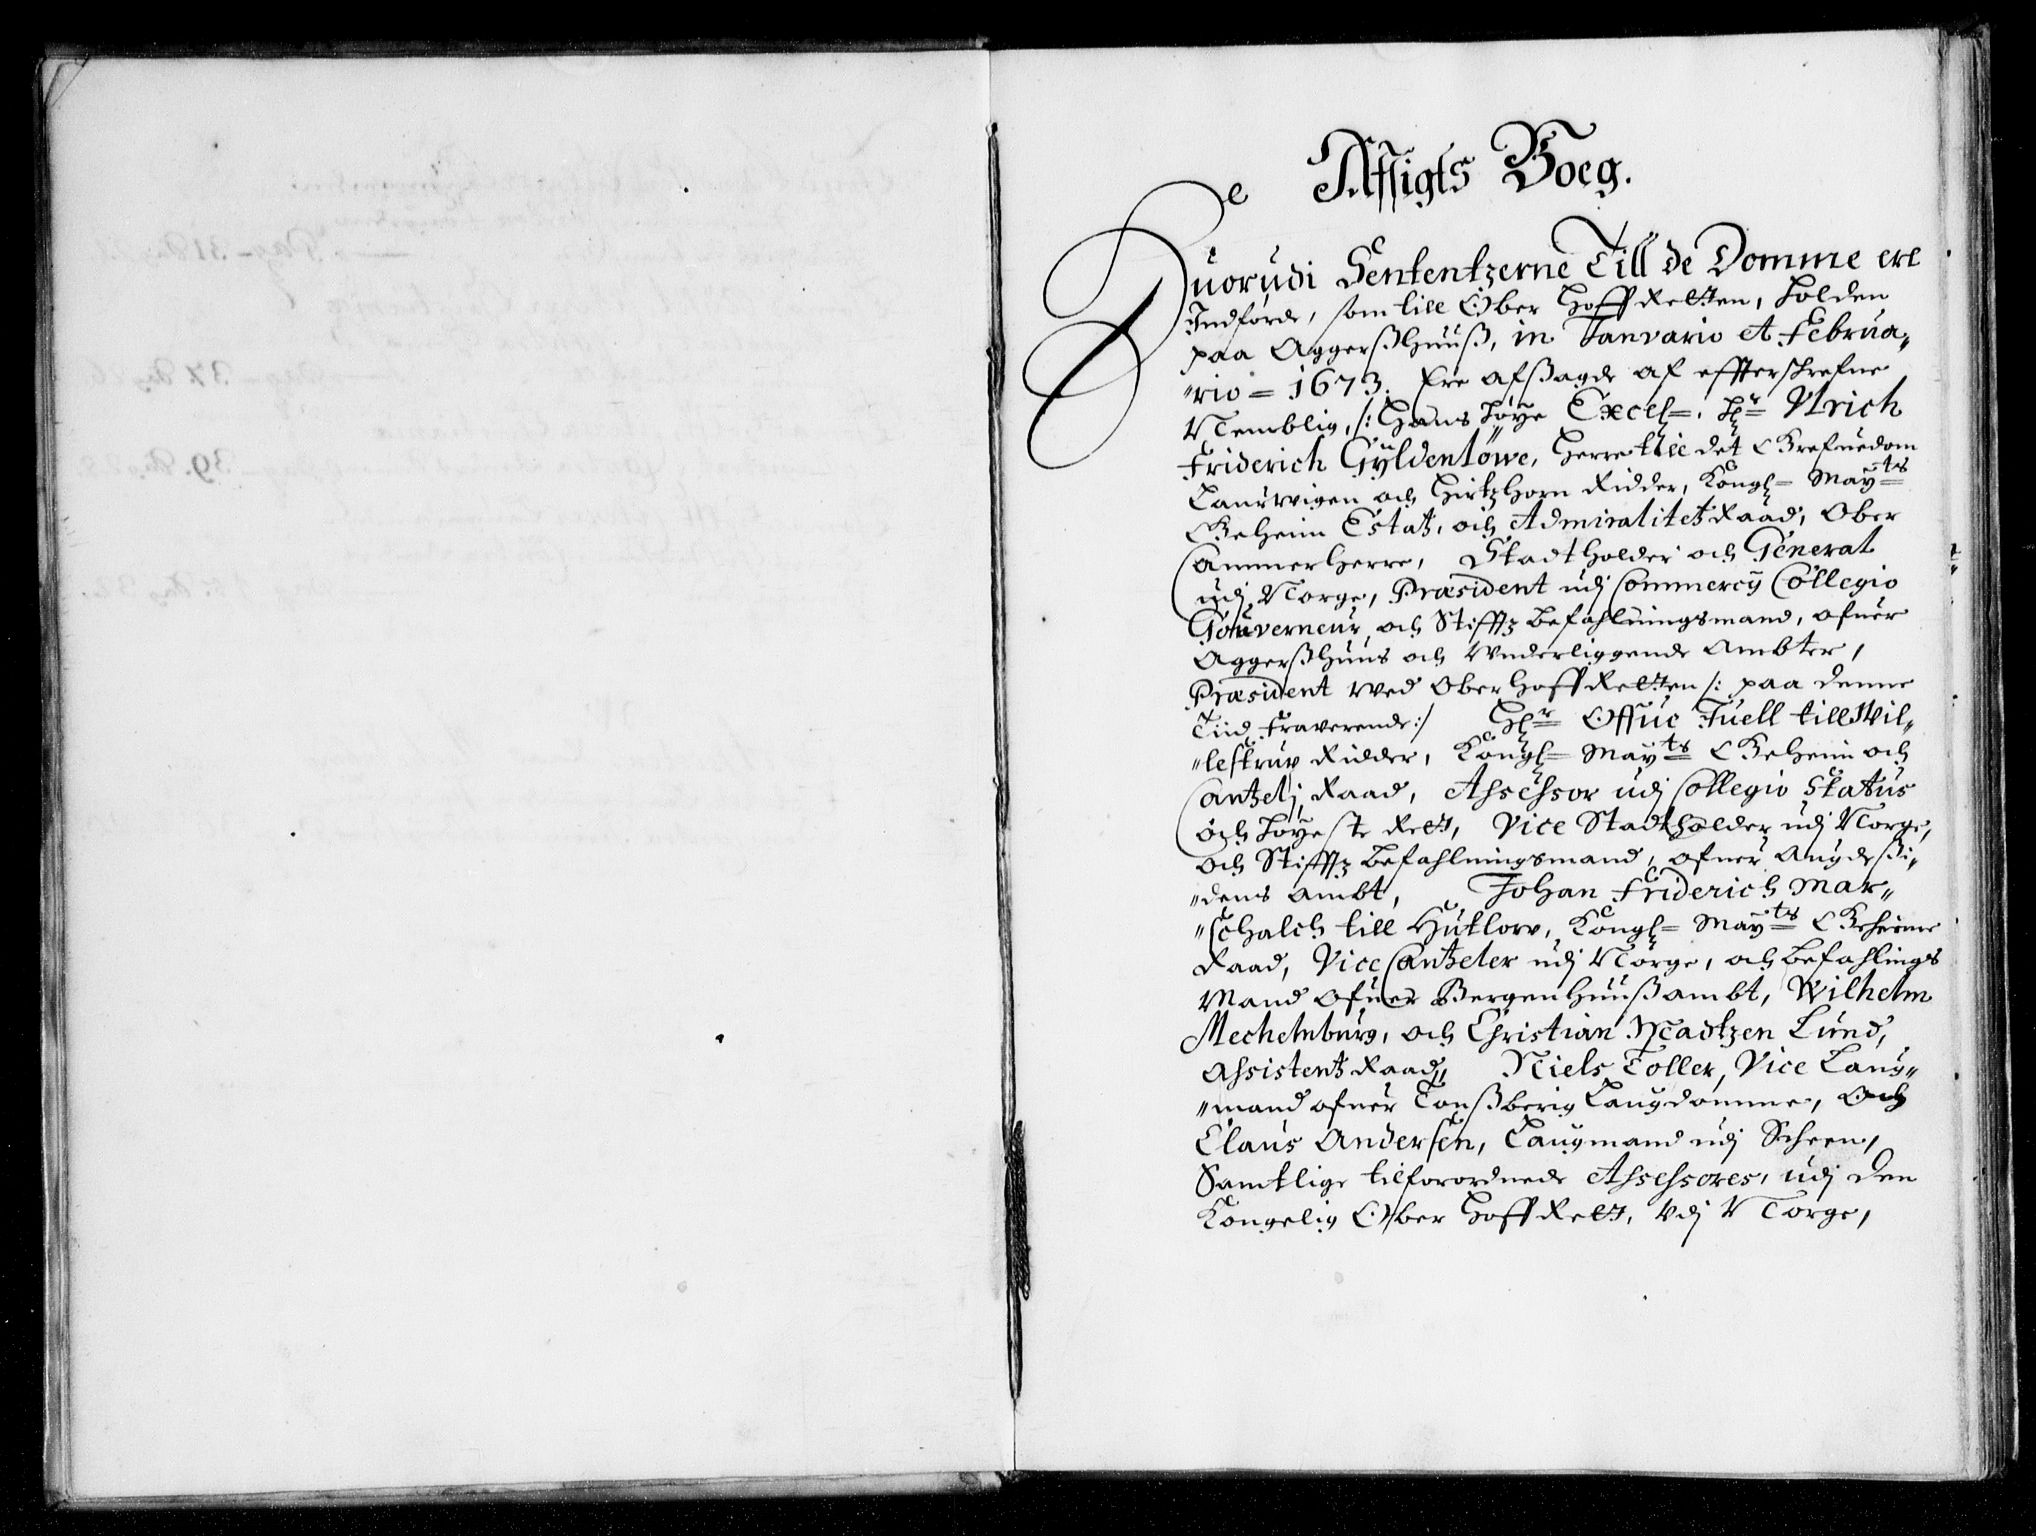 Affsigts Boeg.
Huorudi Sententzerne Till de Domme ere
Indførde, som till Ober Hoff Retten, holden
paa Aggerßhuuß, in Januario et Februa„
„rio = 1673. Ere afßagde af effterschrefne
Nemblig, /: Hans høye Excel=. Hr= Ulrich
Friderich Gÿldenløwe, Herre till det Grefuedom
Laurwigen och Hirtzhorn Ridder, Kongl= Maÿts
Geheim Estatz, och Admiralitetz Raad, Ober
Cammerherre, Stadtholder och General
udj Norge, Præsident udj Commercÿ Collegio
Gouverneur, och Stifftz befahlningsmand, ofuer
Aggerßhuus och Underliggende Ambter,
Præsident wed Ober hoff Retten /: paa denne
Tiid fraverende :/ Hr= Offue Juell till Wil„
„lestrup Ridder, Kongl= Maÿts Geheim och
Cantzelj Raad, Assessor udj Collegio Status
och høyeste Rett, Vice Stadtholder udj Norge,
och Stifftz befahlningsmand, ofuer Augdeßi„
„dens Ambt, Johan Friderich Mar„
„schalch till Hutlow, Kongl= Maÿts Geheime
Raad, Vice Cantzeler udj Norge, och befahlings
Mand ofuer Bergenhuuß ambt, Wilhelm
Mechelnburg, och Christian Madtzen Lund,
Assistentz Raad„ Niels Toller, Vice Laug„
„mand ofuer Tonßberig Laugdomme, Och
Claus Andersen, Laugmand udj Scheen,
Samtlige tilforordnede Assessores, udj den
Kongelig Ober Hoff Rett, Udj Norge,